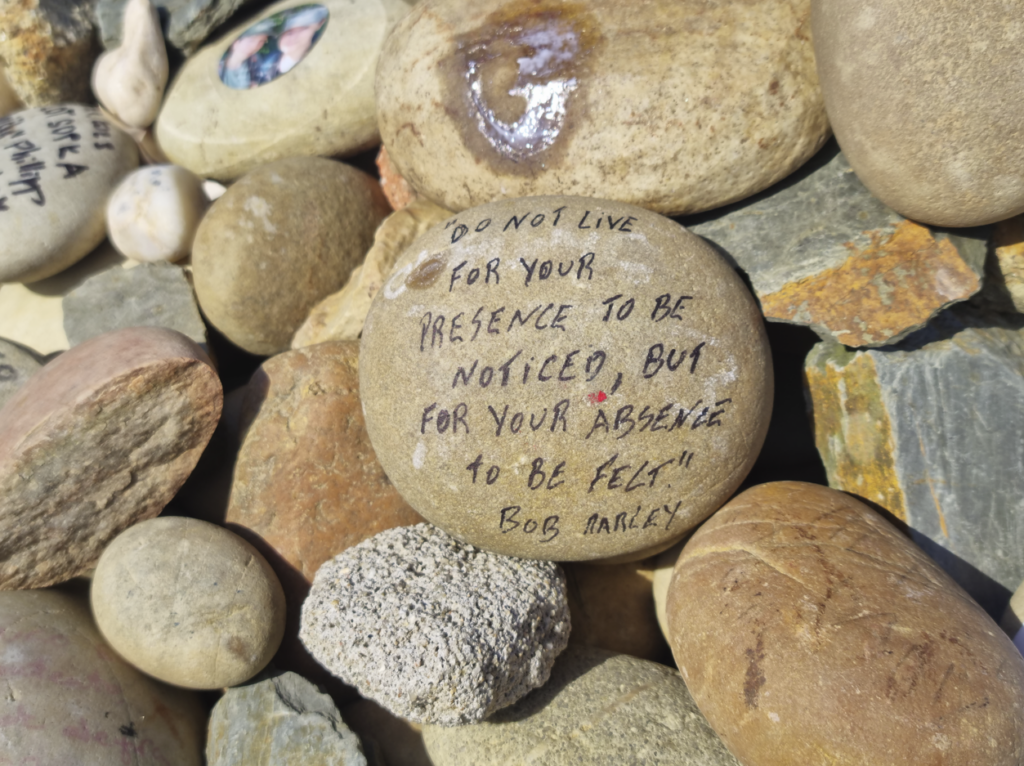 "DO NOT LIVE
FOR YOUR
PRESENCE TO BE
NOTICED, BUT
FOR YOUR ABSENCE
TO BE FELT."
BOB MARLEY